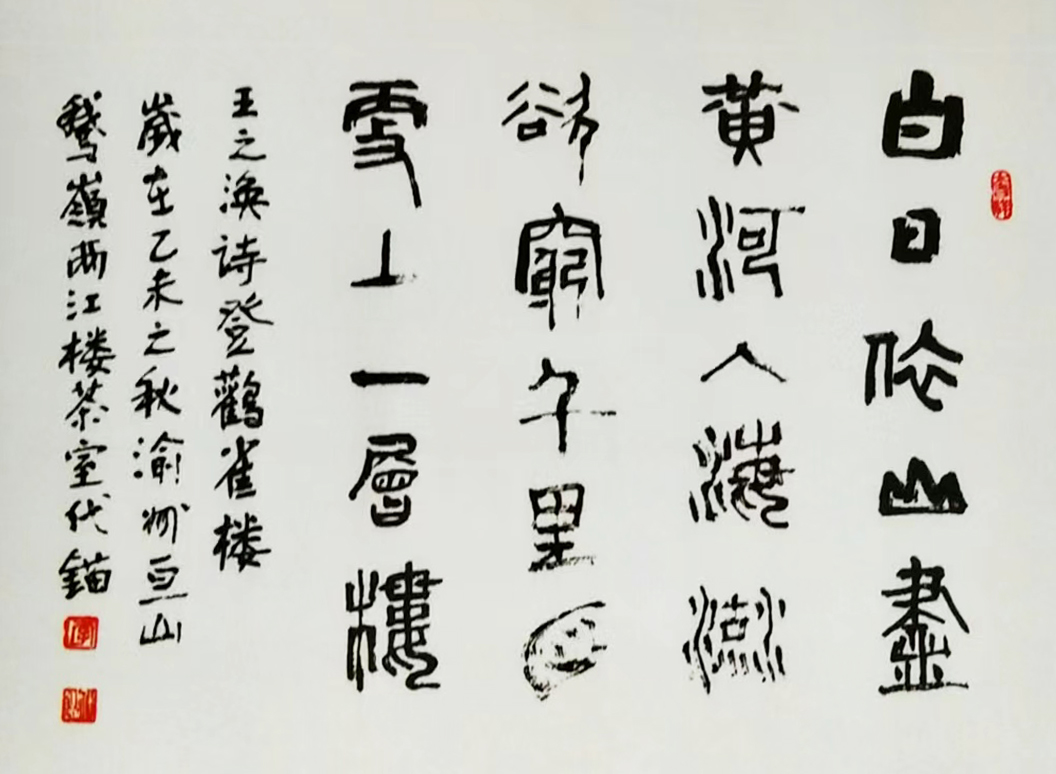 白日依山盡
黄河入海流
欲窮千里目
更上一層樓
王之渙诗登鸛雀楼
嵗在乙未之秋渝州亘山
鵞嶺两江楼茶室代錨